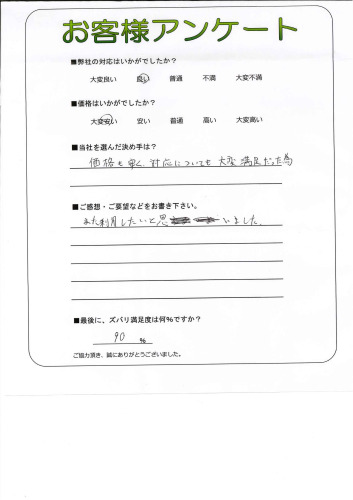 お客様アンケート
■弊社の対応はいかがでしたか?
大変良い 良い 普通 不満 大変不満
■価格はいかがでしたか?
大変安い 安い 普通 高い 大変高い
■当社を選んだ決め手は?
価格も安く、対応についても大変満足だった為
■ご感想・ご要望などをお書き下さい。
また利用したいと思いました。
■最後に、ズバリ満足度は何%ですか?
90 %
ご協力頂き、誠にありがとうございました。